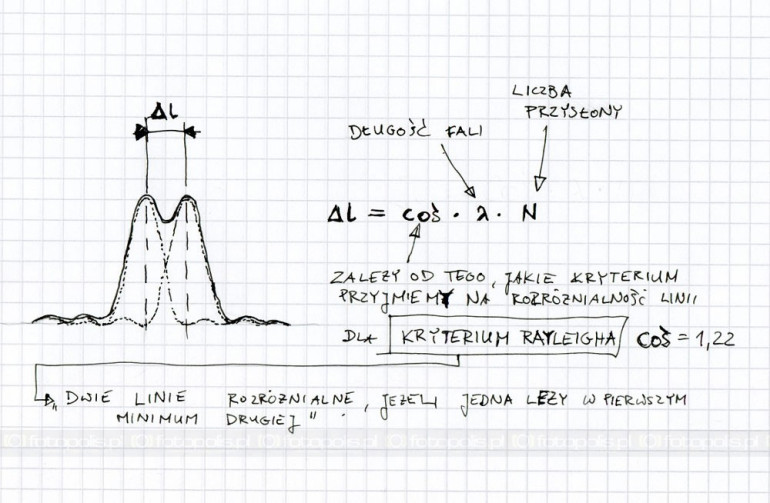 Δl
LICZBA
PRZYSŁONY
DŁUGOŚĆ FALI
Δl = coś · λ · N
ZALEŻY OD TEGO, JAKIE KRYTERIUM
PRZYJMIEMY NA ROZRÓŻNIALNOŚĆ LINII
DLA KRYTERIUM RAYLEIGHA coś = 1,22
„DWIE LINIE ROZRÓŻNIALNE, JEŻELI JEDNA LEŻY W PIERWSZYM
MINIMUM DRUGIEJ".
fotopolis.pl fotopolis.pl fotopolis.pl fotopolis.pl fotopolis.pl fotopolis.pl